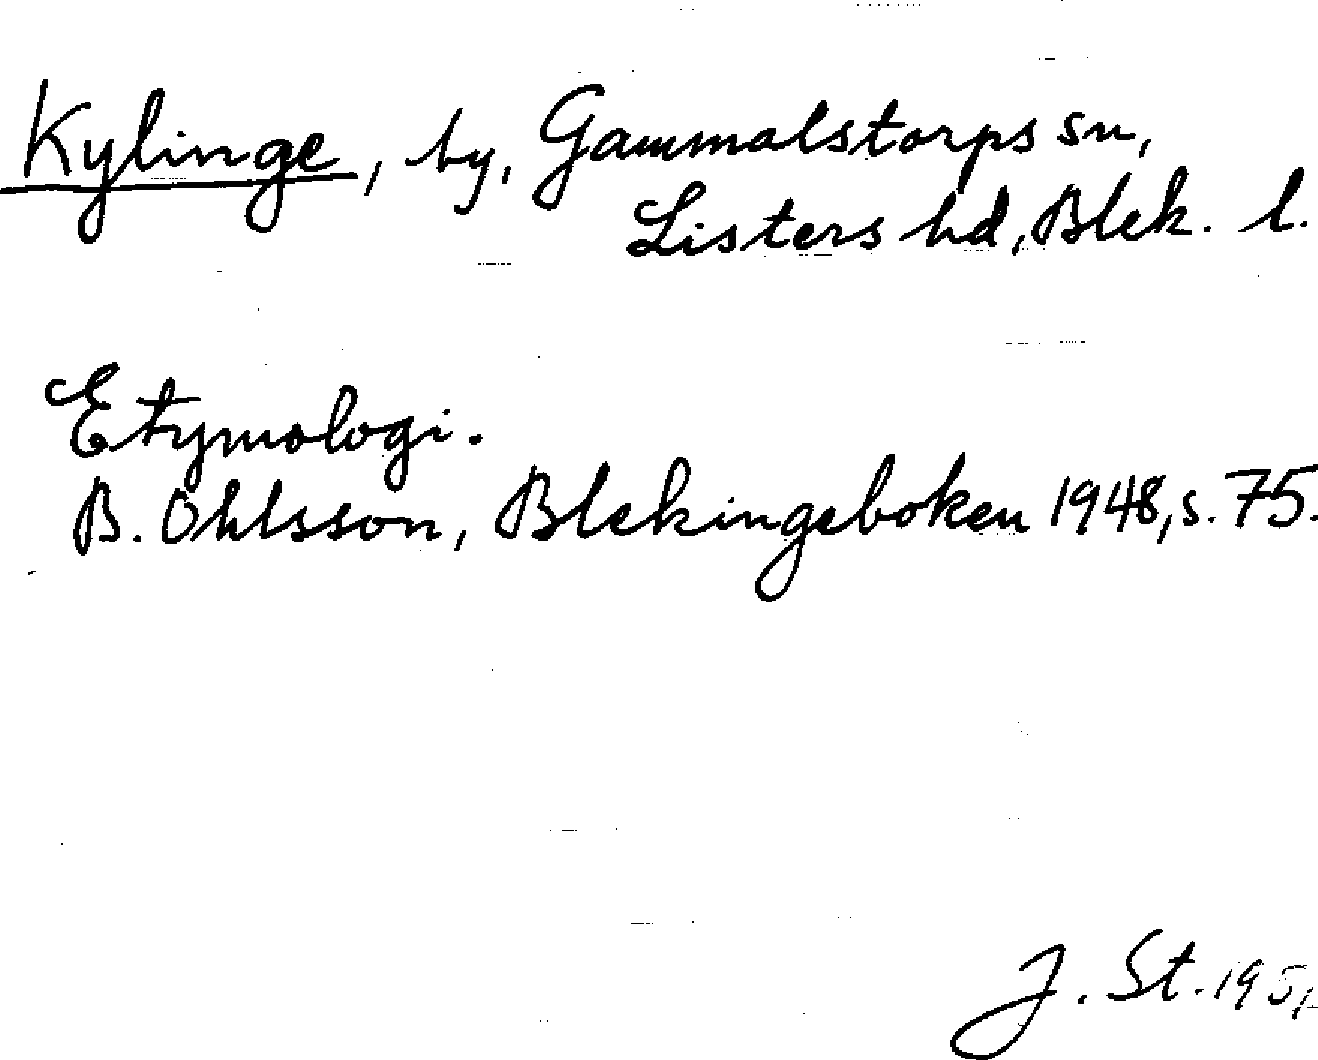 Kylinge, by, Gammalstorps sn,
Listers hd, Blek. l.
Etymologi.
B. Ohlsson, Blekingeboken 1948, s. 75.
J. St.